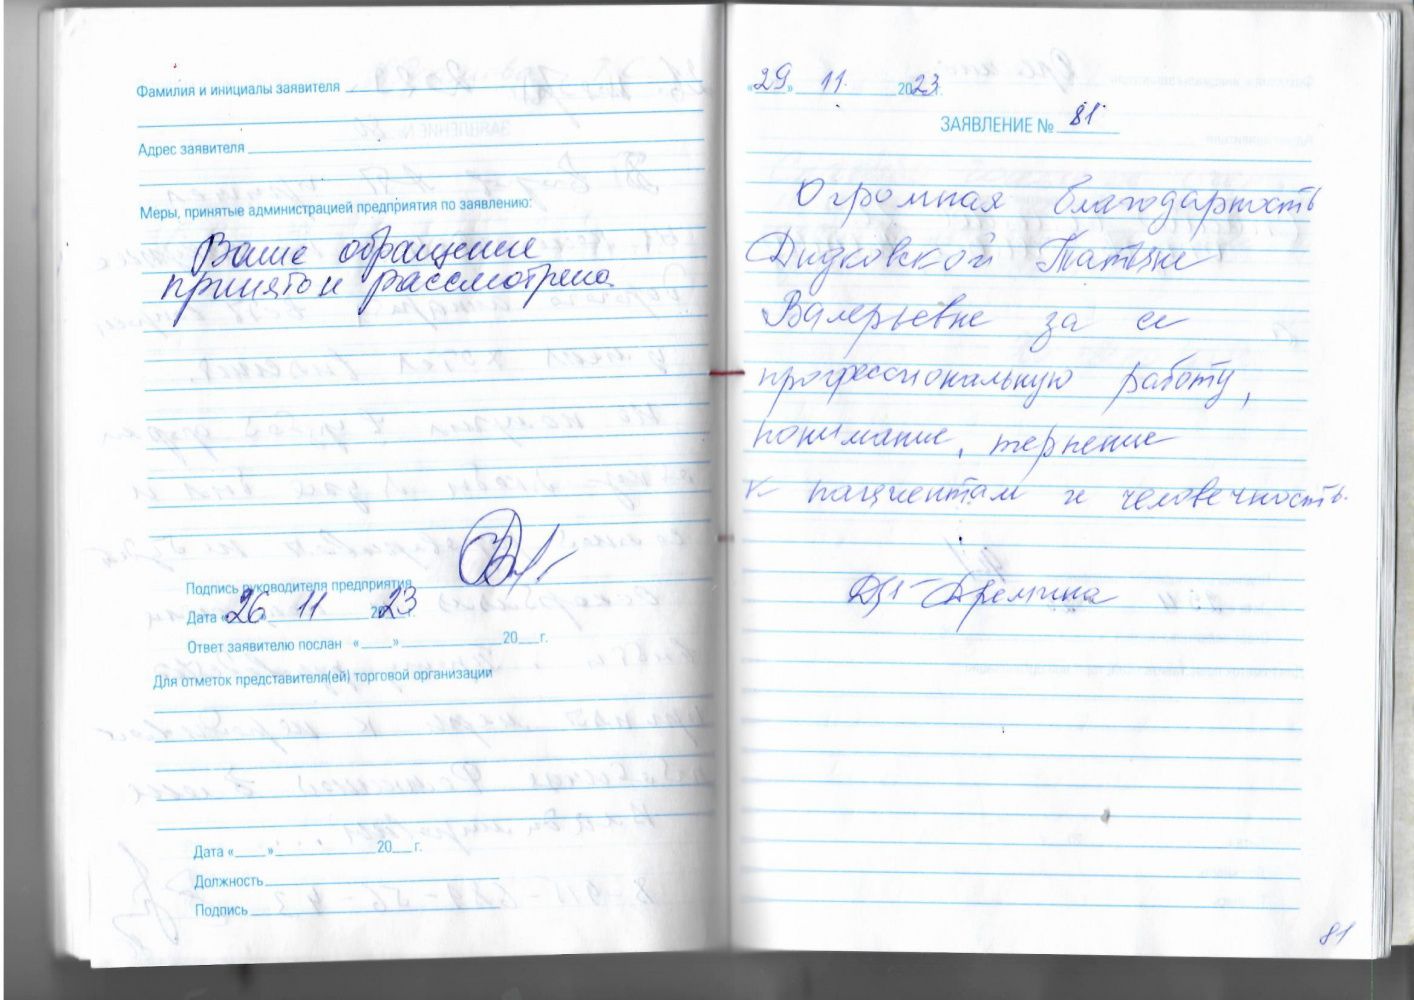 Фамилия и инициалы заявителя
Адрес заявителя
Меры, принятые администрацией предприятия по заявлению:
Ваше обращение
принято и рассмотрено
Подпись руководителя предприятия
Дата «26» 11 2023г.
Ответ заявителю послан «    »             20    г.
Для отметок представителя(ей) торговой организации
Дата «    »             20    г.
Должность
Подпись
«29» 11. 2023г.
ЗАЯВЛЕНИЕ № 81
Огромная благодарность
Дидковской Татьяне
Валерьевне за ее
профессиональную работу,
понимание, терпение
к пациентам и человечность.
Еремина
81